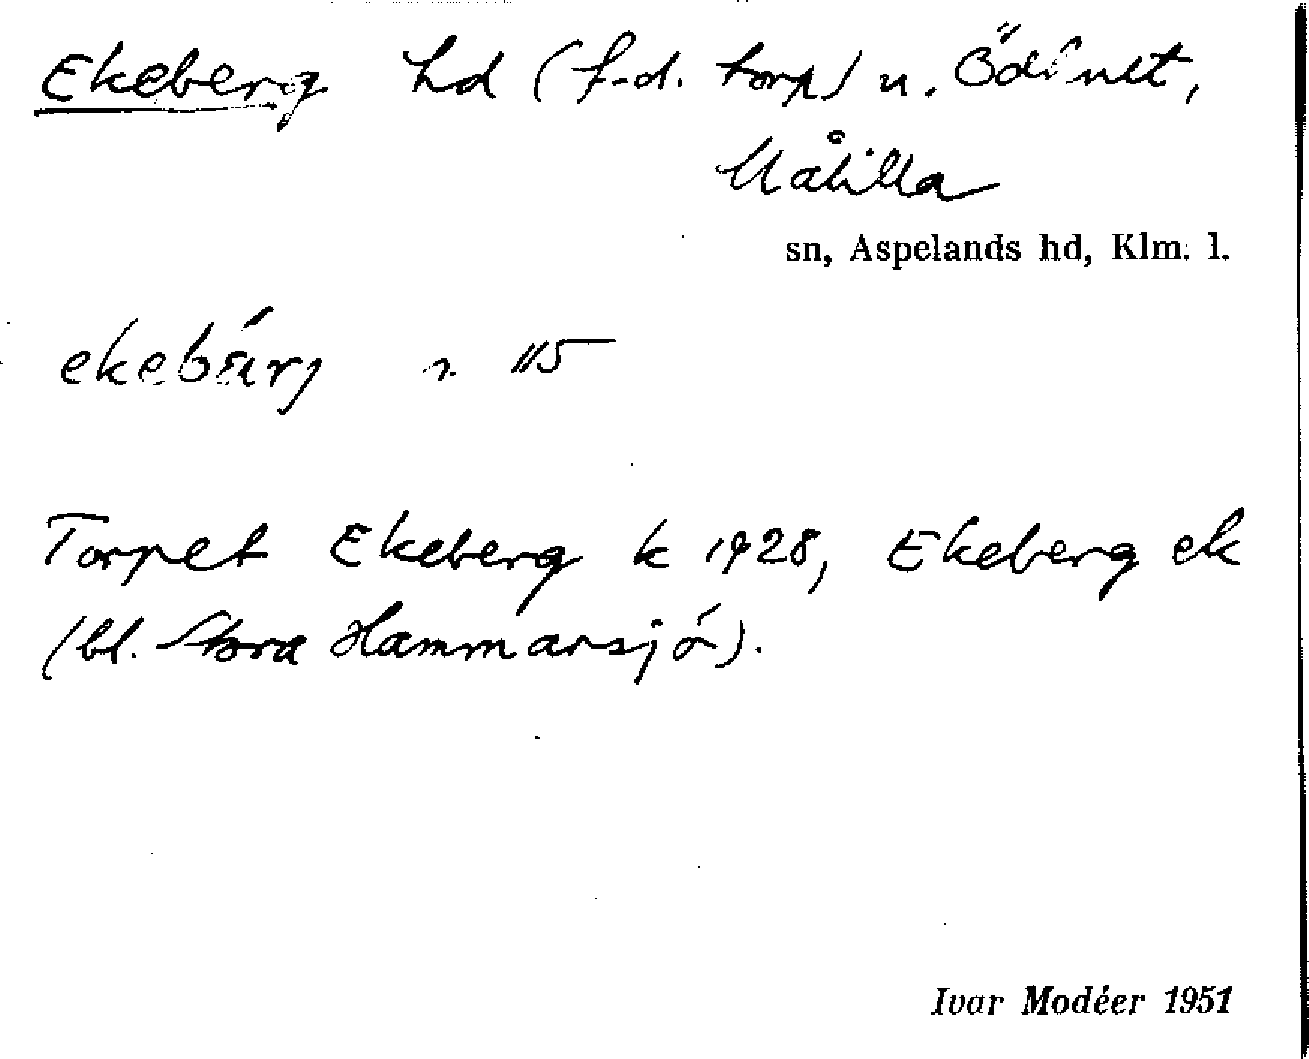 Ekeberg hd (f.d. torp) u. Ödinet,
Målilla
sn, Aspelands hd, Klm. l.
ekebärj
Torpet Ekeberg k 1928, Ekeberg ek
(bl. Stora Hammarsjö).
Ivar Modéer 1951